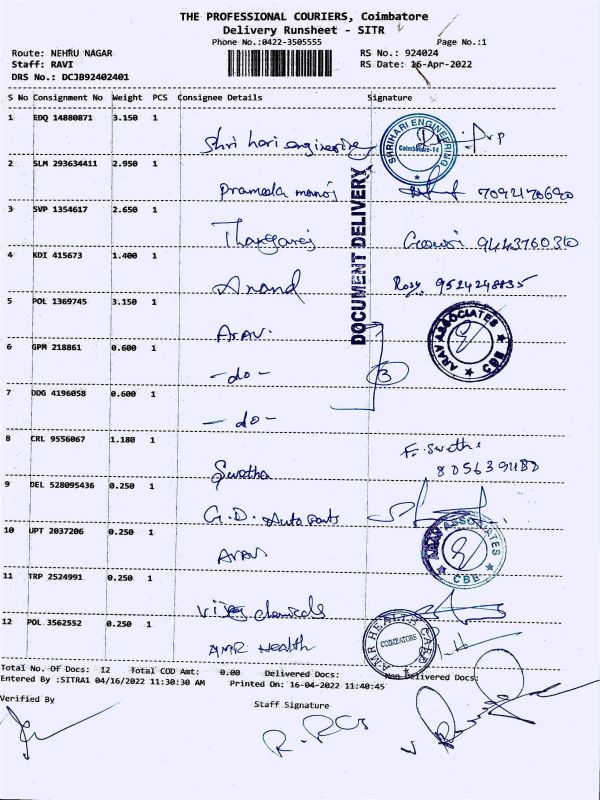 THE PROFESSIONAL COURIERS, Coimbatore
Delivery Runsheet - SITR
Phone No.:0422-3505555 Page No.:1
Route: NEHRU NAGAR RS No.: 924024
Staff: RAVI RS Date: 16-Apr-2022
DRS No.: DCJB92402401
S No Consignment No Weight PCS Consignee Details Signature
1 EDQ 14880871 3.150 1
Shri hari engineering
SHRIHARI ENGINEERING Coimbatore-14
2 SLM 293634411 2.950 1
Prameela manoj
3 SVP 1354617 2.650 1
Thangaraj Gowri
4 KDI 415673 1.400 1
Anand Rosy 9524248835
DOCUMENT DELIVERY
5 POL 1369745 3.150 1
Arav.
ARAV ASSOCIATES CBE
6 GPM 218861 0.600 1
-do- 3
7 DDG 4196058 0.600 1
-do-
8 CRL 9556067 1.180 1
Swetha
9 DEL 528095436 0.250 1
G.D. Auto Parts
10 UPT 2037206 0.250 1
Arav
ARAV ASSOCIATES CBE
11 TRP 2524991 0.250 1
Vijay chemicals
12 POL 3562552 0.250 1
AMR Health
AMR HEALTH CARE COIMBATORE
Total No. Of Docs: 12 Total COD Amt: 0.00 Delivered Docs: Non Delivered Docs:
Entered By :SITRA1 04/16/2022 11:30:30 AM Printed On: 16-04-2022 11:40:45
Verified By Staff Signature